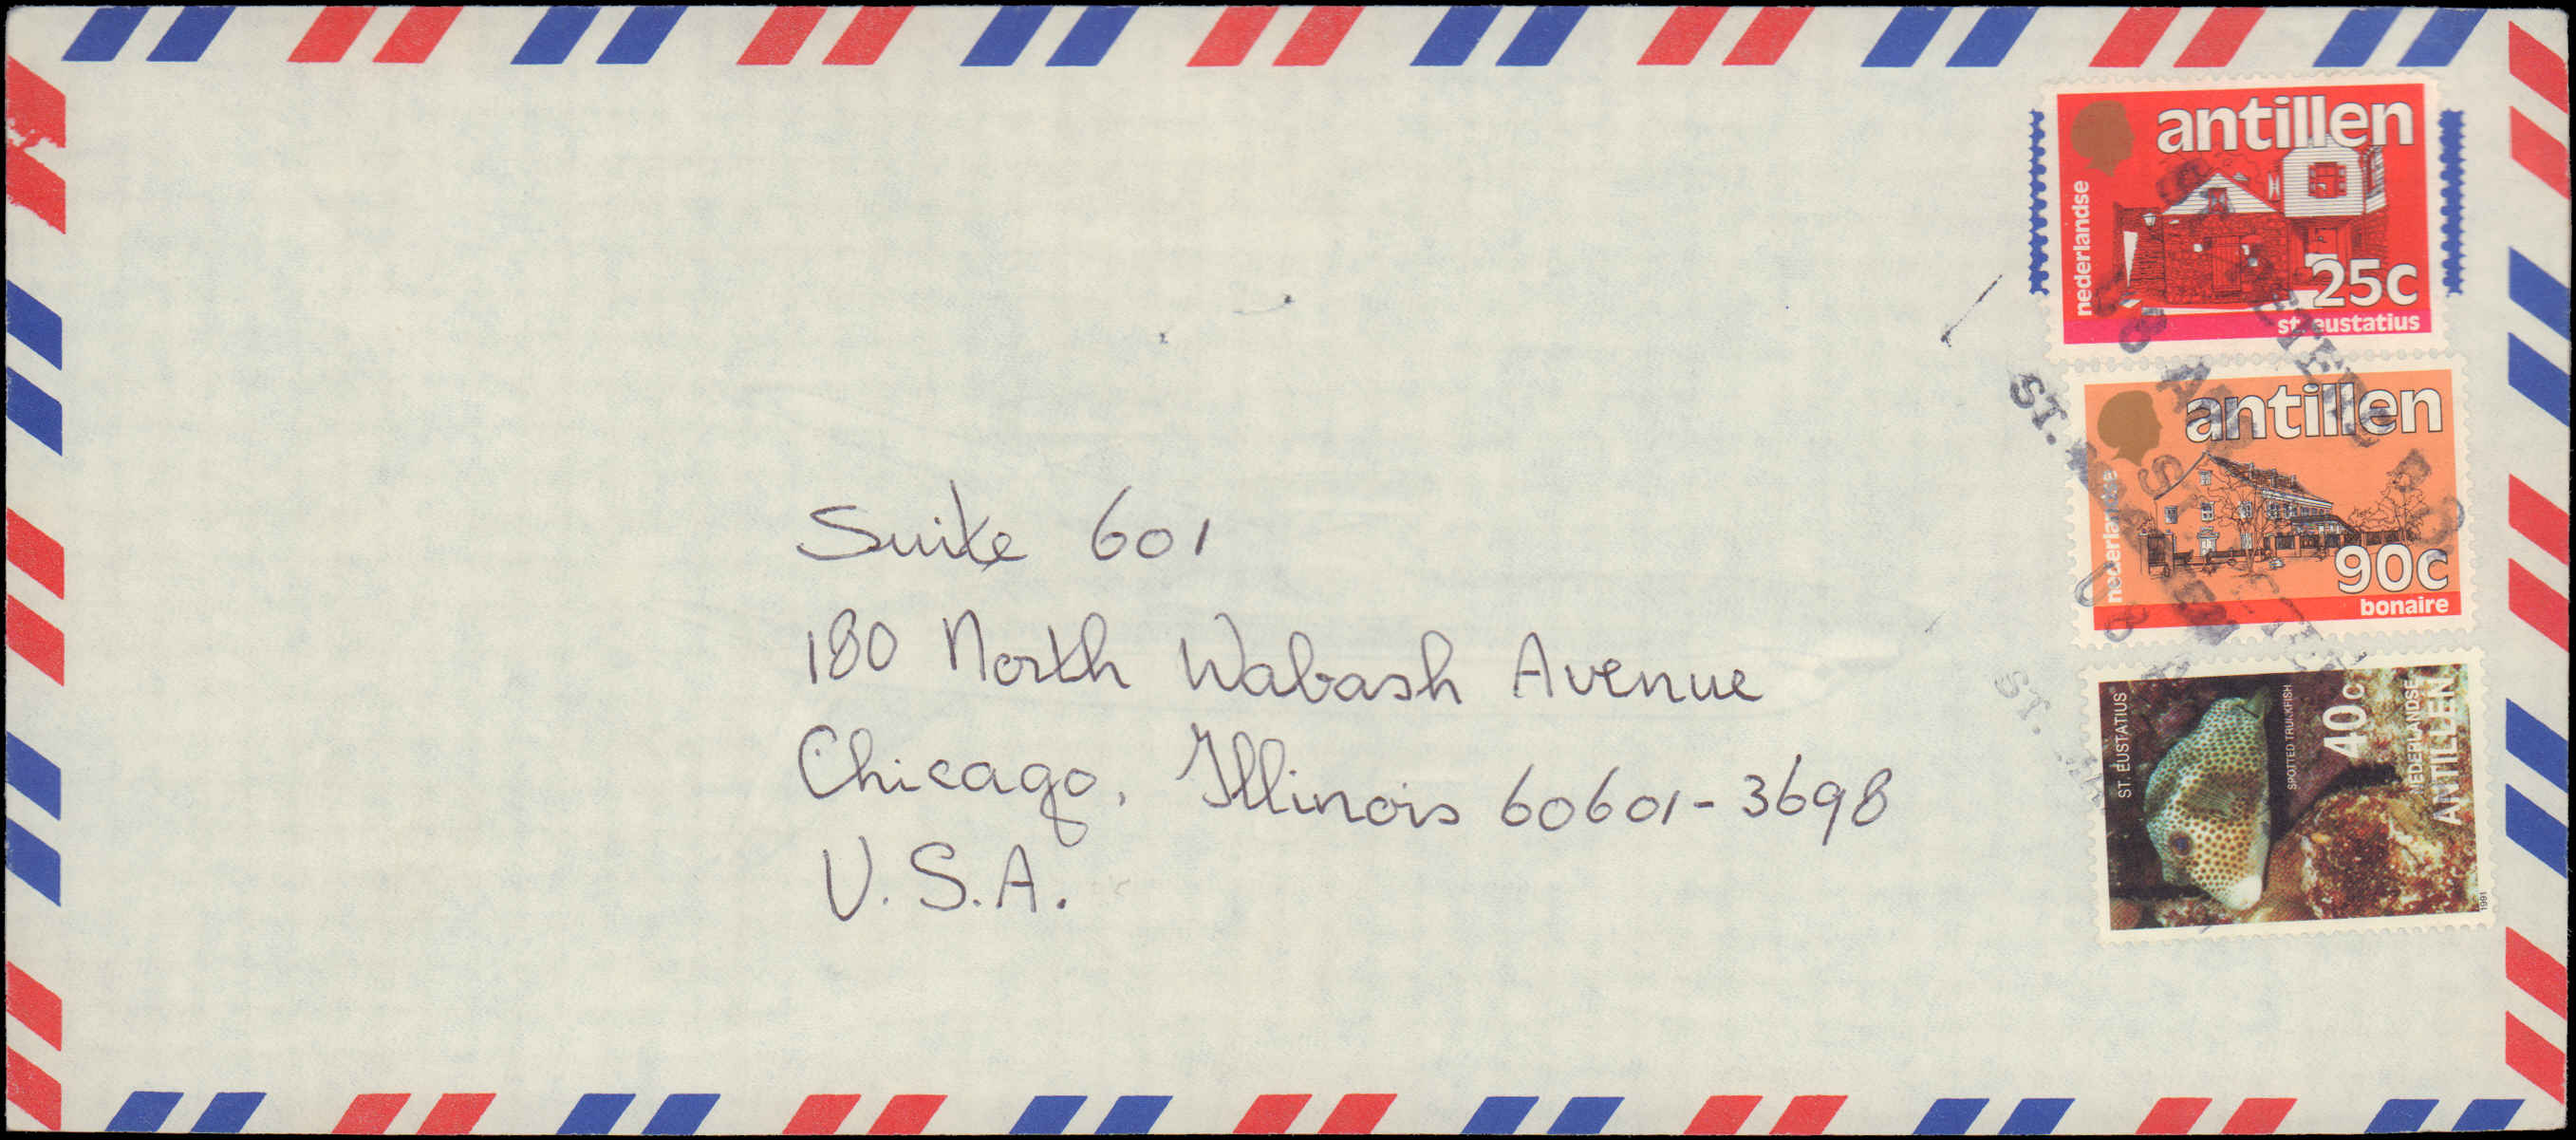 Suite 601
180 North Wabash Avenue
Chicago, Illinois 60601-3698
U.S.A.
antillen
nederlandse
25c
st. eustatius
antillen
nederlandse
90c
bonaire
ST. EUSTATIUS
SPOTTED TRUNKFISH
40c
NEDERLANDSE
ANTILLEN
1991
ST.
08
ST.